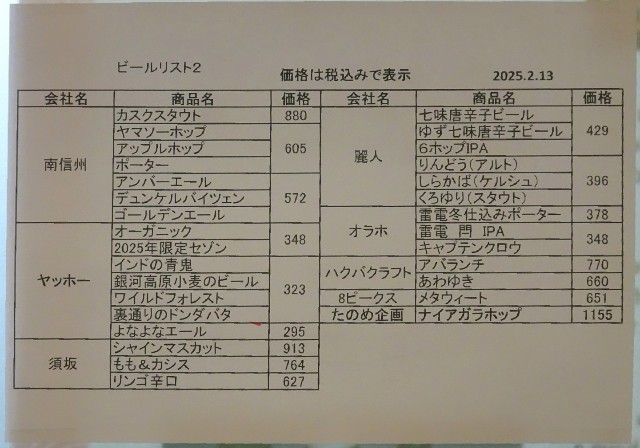 ビールリスト2 価格は税込みで表示 2025.2.13
会社名 商品名 価格
南信州
カスクスタウト 880
ヤマソーホップ
アップルホップ 605
ポーター
アンバーエール
デュンケルバイツェン 572
ゴールデンエール
ヤッホー
オーガニック 348
2025年限定セゾン
インドの青鬼
銀河高原小麦のビール 323
ワイルドフォレスト
裏通りのドンダバタ
よなよなエール 295
須坂
シャインマスカット 913
もも&カシス 764
リンゴ辛口 627
会社名 商品名 価格
麗人
七味唐辛子ビール
ゆず七味唐辛子ビール 429
6ホップIPA
りんどう(アルト)
しらかば(ケルシュ) 396
くろゆり(スタウト)
オラホ
雷電冬仕込みポーター 378
雷電 閂 IPA 348
キャプテンクロウ
ハクバクラフト
アバランチ 770
あわゆき 660
8ピークス メタウィート 651
たのめ企画 ナイアガラホップ 1155